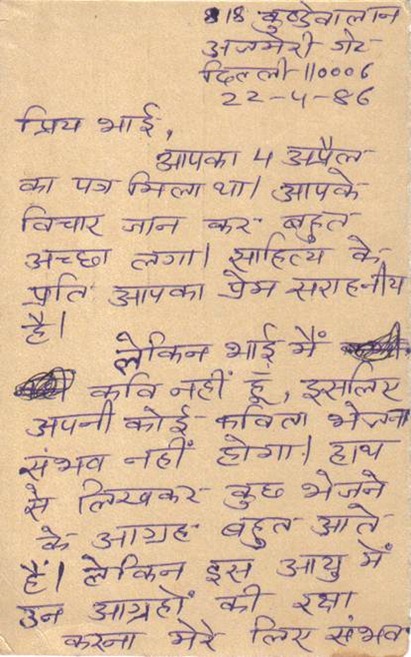 818 कुण्डेवालान
अजमेरी गेट
दिल्ली-110006
22-4-86
प्रिय भाई,
आपका 4 अप्रैल
का पत्र मिला था। आपके
विचार जान कर बहुत
अच्छा लगा। साहित्य के
प्रति आपका प्रेम सराहनीय
है।
लेकिन भाई मैं
कवि नहीं हूँ, इसलिए
अपनी कोई कविता भेजना
संभव नहीं होगा। हाथ
से लिखकर कुछ भेजने
के आग्रह बहुत आते
हैं। लेकिन इस आयु में
उन आग्रहों की रक्षा
करना मेरे लिए संभव